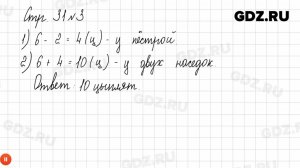 GDZ.RU
Стр 31 №3
1) 6 - 2 = 4 (ц) - у пёстрой
2) 6 + 4 = 10 (ц) - у двух наседок
Ответ: 10 цыплят.
GDZ.RU